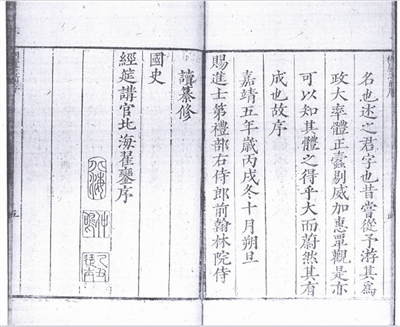 名也述之君字也昔嘗從予游其為
政大率體正蠹剔威加惠覃觀是亦
可以知其體之得乎大而蔚然其有
成也故序
嘉靖五年歲丙戌冬十月朔旦
賜進士第禮部右侍郎前翰林院侍
讀纂修
國史
經筵講官北海翟鑾序
北海
五